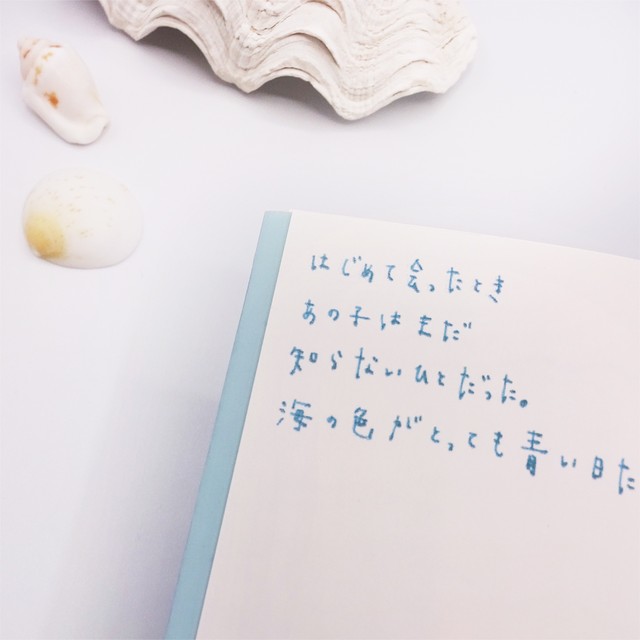 はじめて会ったとき
あの子はまだ
知らないひとだった。
海の色がとっても青い日だ